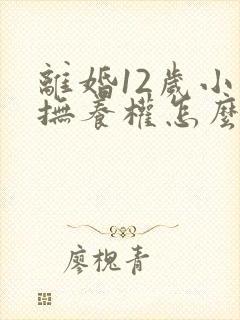 離婚12歲小
撫養權怎麼
廖槐青